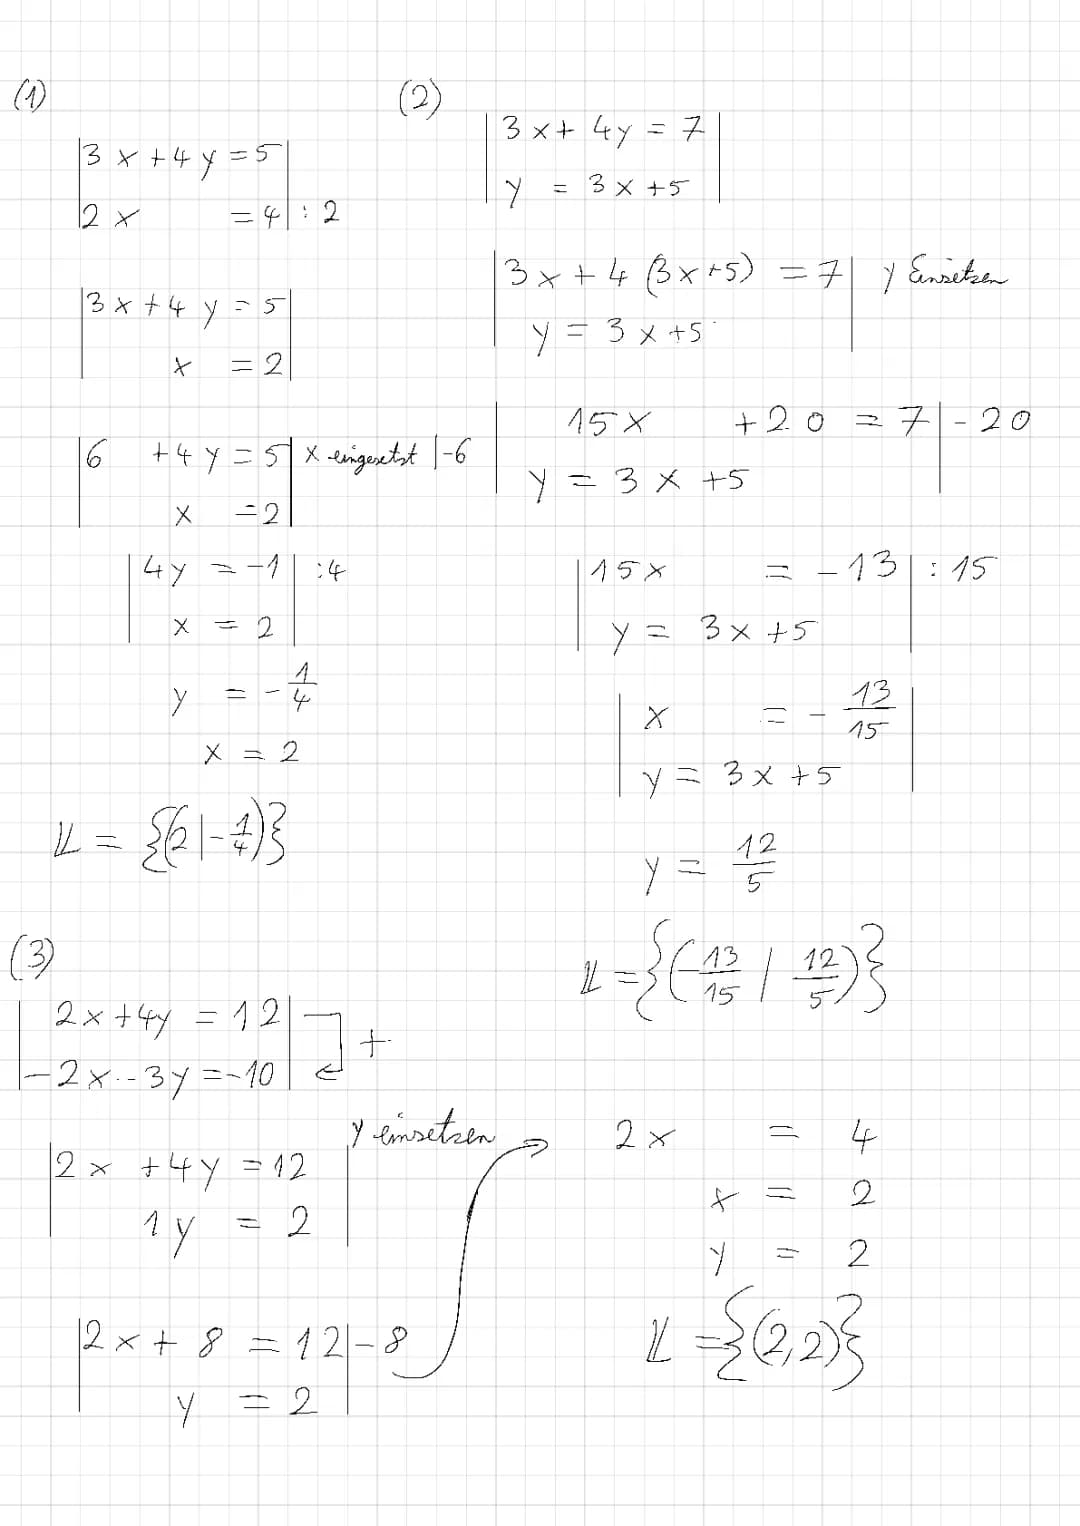 (1)
|3x + 4y = 5|
|2x = 4| : 2
|3x + 4y = 5|
| x = 2|
|6 + 4y = 5| x eingesetzt |-6
| x = 2|
|4y = -1| :4
| x = 2|
y = -1/4
x = 2
𝕃 = {(2|-1/4)}
(2)
|3x + 4y = 7|
|y = 3x + 5|
|3x + 4(3x+5) = 7| y Einsetzen
|y = 3x + 5|
|15x + 20 = 7| - 20
|y = 3x + 5|
|15x = -13| : 15
|y = 3x + 5|
|x = -13/15|
|y = 3x + 5|
y = 12/5
𝕃 = {(-13/15 | 12/5)}
(3)
|2x + 4y = 12|
|-2x - 3y = -10| +
|2x + 4y = 12| y einsetzen
|1y = 2|
|2x + 8 = 12| - 8
|y = 2|
2x = 4
x = 2
y = 2
𝕃 = {(2,2)}